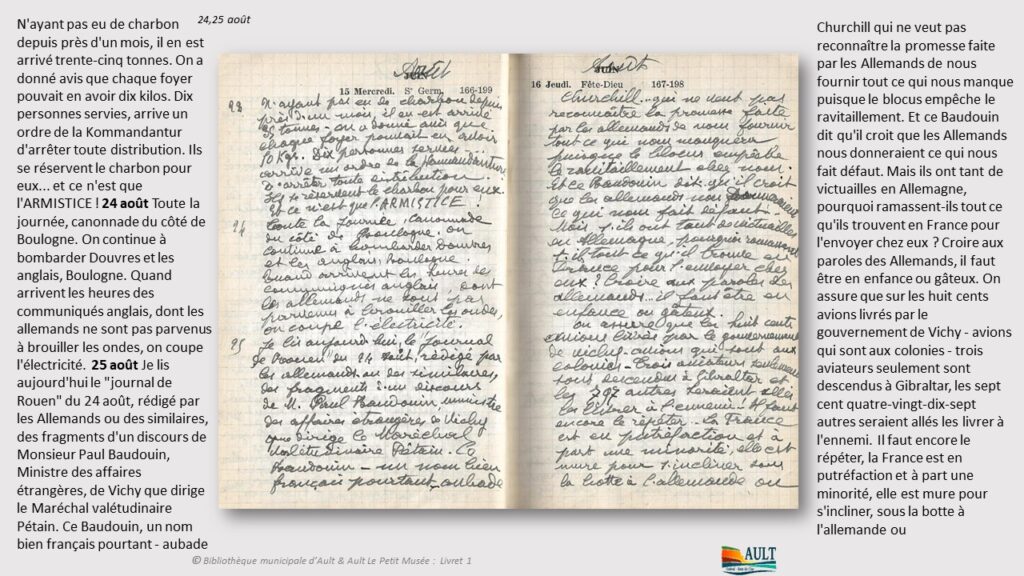 24,25 août
N'ayant pas eu de charbon
depuis près d'un mois, il en est
arrivé trente-cinq tonnes. On a
donné avis que chaque foyer
pouvait en avoir dix kilos. Dix
personnes servies, arrive un
ordre de la Kommandantur
d'arrêter toute distribution. Ils
se réservent le charbon pour
eux... et ce n'est que
l'ARMISTICE ! 24 août Toute la
journée, canonnade du côté de
Boulogne. On continue à
bombarder Douvres et les
anglais, Boulogne. Quand
arrivent les heures des
communiqués anglais, dont les
allemands ne sont pas parvenus
à brouiller les ondes, on coupe
l'électricité. 25 août Je lis
aujourd'hui le "journal de
Rouen" du 24 août, rédigé par
les Allemands ou des similaires,
des fragments d'un discours de
Monsieur Paul Baudouin,
Ministre des affaires
étrangères, de Vichy que dirige
le Maréchal valétudinaire
Pétain. Ce Baudouin, un nom
bien français pourtant - aubade
Août
15 Mercredi. St Germ. 166-199
23 N'ayant pas eu de charbon depuis
près d'un mois, il en est arrivé
35 tonnes - on a donné avis que
chaque foyer pouvait en avoir
10 kgs. Dix personnes servies...
arrive un ordre de la Kommandanture
d'arrêter toute distribution.
Ils se réservent le charbon pour eux.
Et ce n'est que l'ARMISTICE !
24 Toute la journée, canonnade
du côté de Boulogne. On
continue à bombarder Douvres
et les anglais Boulogne.
Quand arrivent les heures des
communiqués anglais dont
les allemands ne sont pas
parvenus à brouiller les ondes,
on coupe l'électricité.
25 Je lis aujourd'hui, le Journal
de Rouen du 24 août, rédigé par
les allemands ou des similaires,
des fragments d'un discours
de M. Paul Baudouin ministre
des affaires étrangères de Vichy
que dirige le Maréchal
valétudinaire Pétain. Ce
Baudouin - un nom bien
français pourtant - aubade
Août
16 Jeudi. Fête-Dieu 167-198
Churchill qui ne veut pas
reconnaître la promesse faite
par les allemands de nous fournir
tout ce qui nous manquera
puisque le blocus empêche
le ravitaillement chez nous.
Et ce Baudouin dit qu'il croit
que les allemands nous donneraient
ce qui nous fait défaut.
Mais s'ils ont tant de victuailles
en Allemagne, pourquoi ramassent
t'ils tout ce qu'ils trouve en
France pour l'envoyer chez
eux ? Croire aux paroles des
allemands... il faut être en
enfance ou gâteux.
On assure que les huit cents
avions livrés par le gouvernement
de Vichy - avions qui sont aux
colonies - trois aviateurs seulement
sont descendus à Gibraltar et
les 797 autres seraient allés
les livrer à l'ennemi. Il faut
encore le répéter. La France
est en putréfaction et à
part une minorité, elle est
mure pour s'incliner sous
la botte à l'allemande ou
Churchill qui ne veut pas
reconnaître la promesse faite
par les Allemands de nous
fournir tout ce qui nous manque
puisque le blocus empêche le
ravitaillement. Et ce Baudouin
dit qu'il croit que les Allemands
nous donneraient ce qui nous
fait défaut. Mais ils ont tant de
victuailles en Allemagne,
pourquoi ramassent-ils tout ce
qu'ils trouvent en France pour
l'envoyer chez eux ? Croire aux
paroles des Allemands, il faut
être en enfance ou gâteux. On
assure que sur les huit cents
avions livrés par le
gouvernement de Vichy - avions
qui sont aux colonies - trois
aviateurs seulement sont
descendus à Gibraltar, les sept
cent quatre-vingt-dix-sept
autres seraient allés les livrer à
l'ennemi. Il faut encore le
répéter, la France est en
putréfaction et à part une
minorité, elle est mure pour
s'incliner, sous la botte à
l'allemande ou
© Bibliothèque municipale d'Ault & Ault Le Petit Musée : Livret 1
AULT